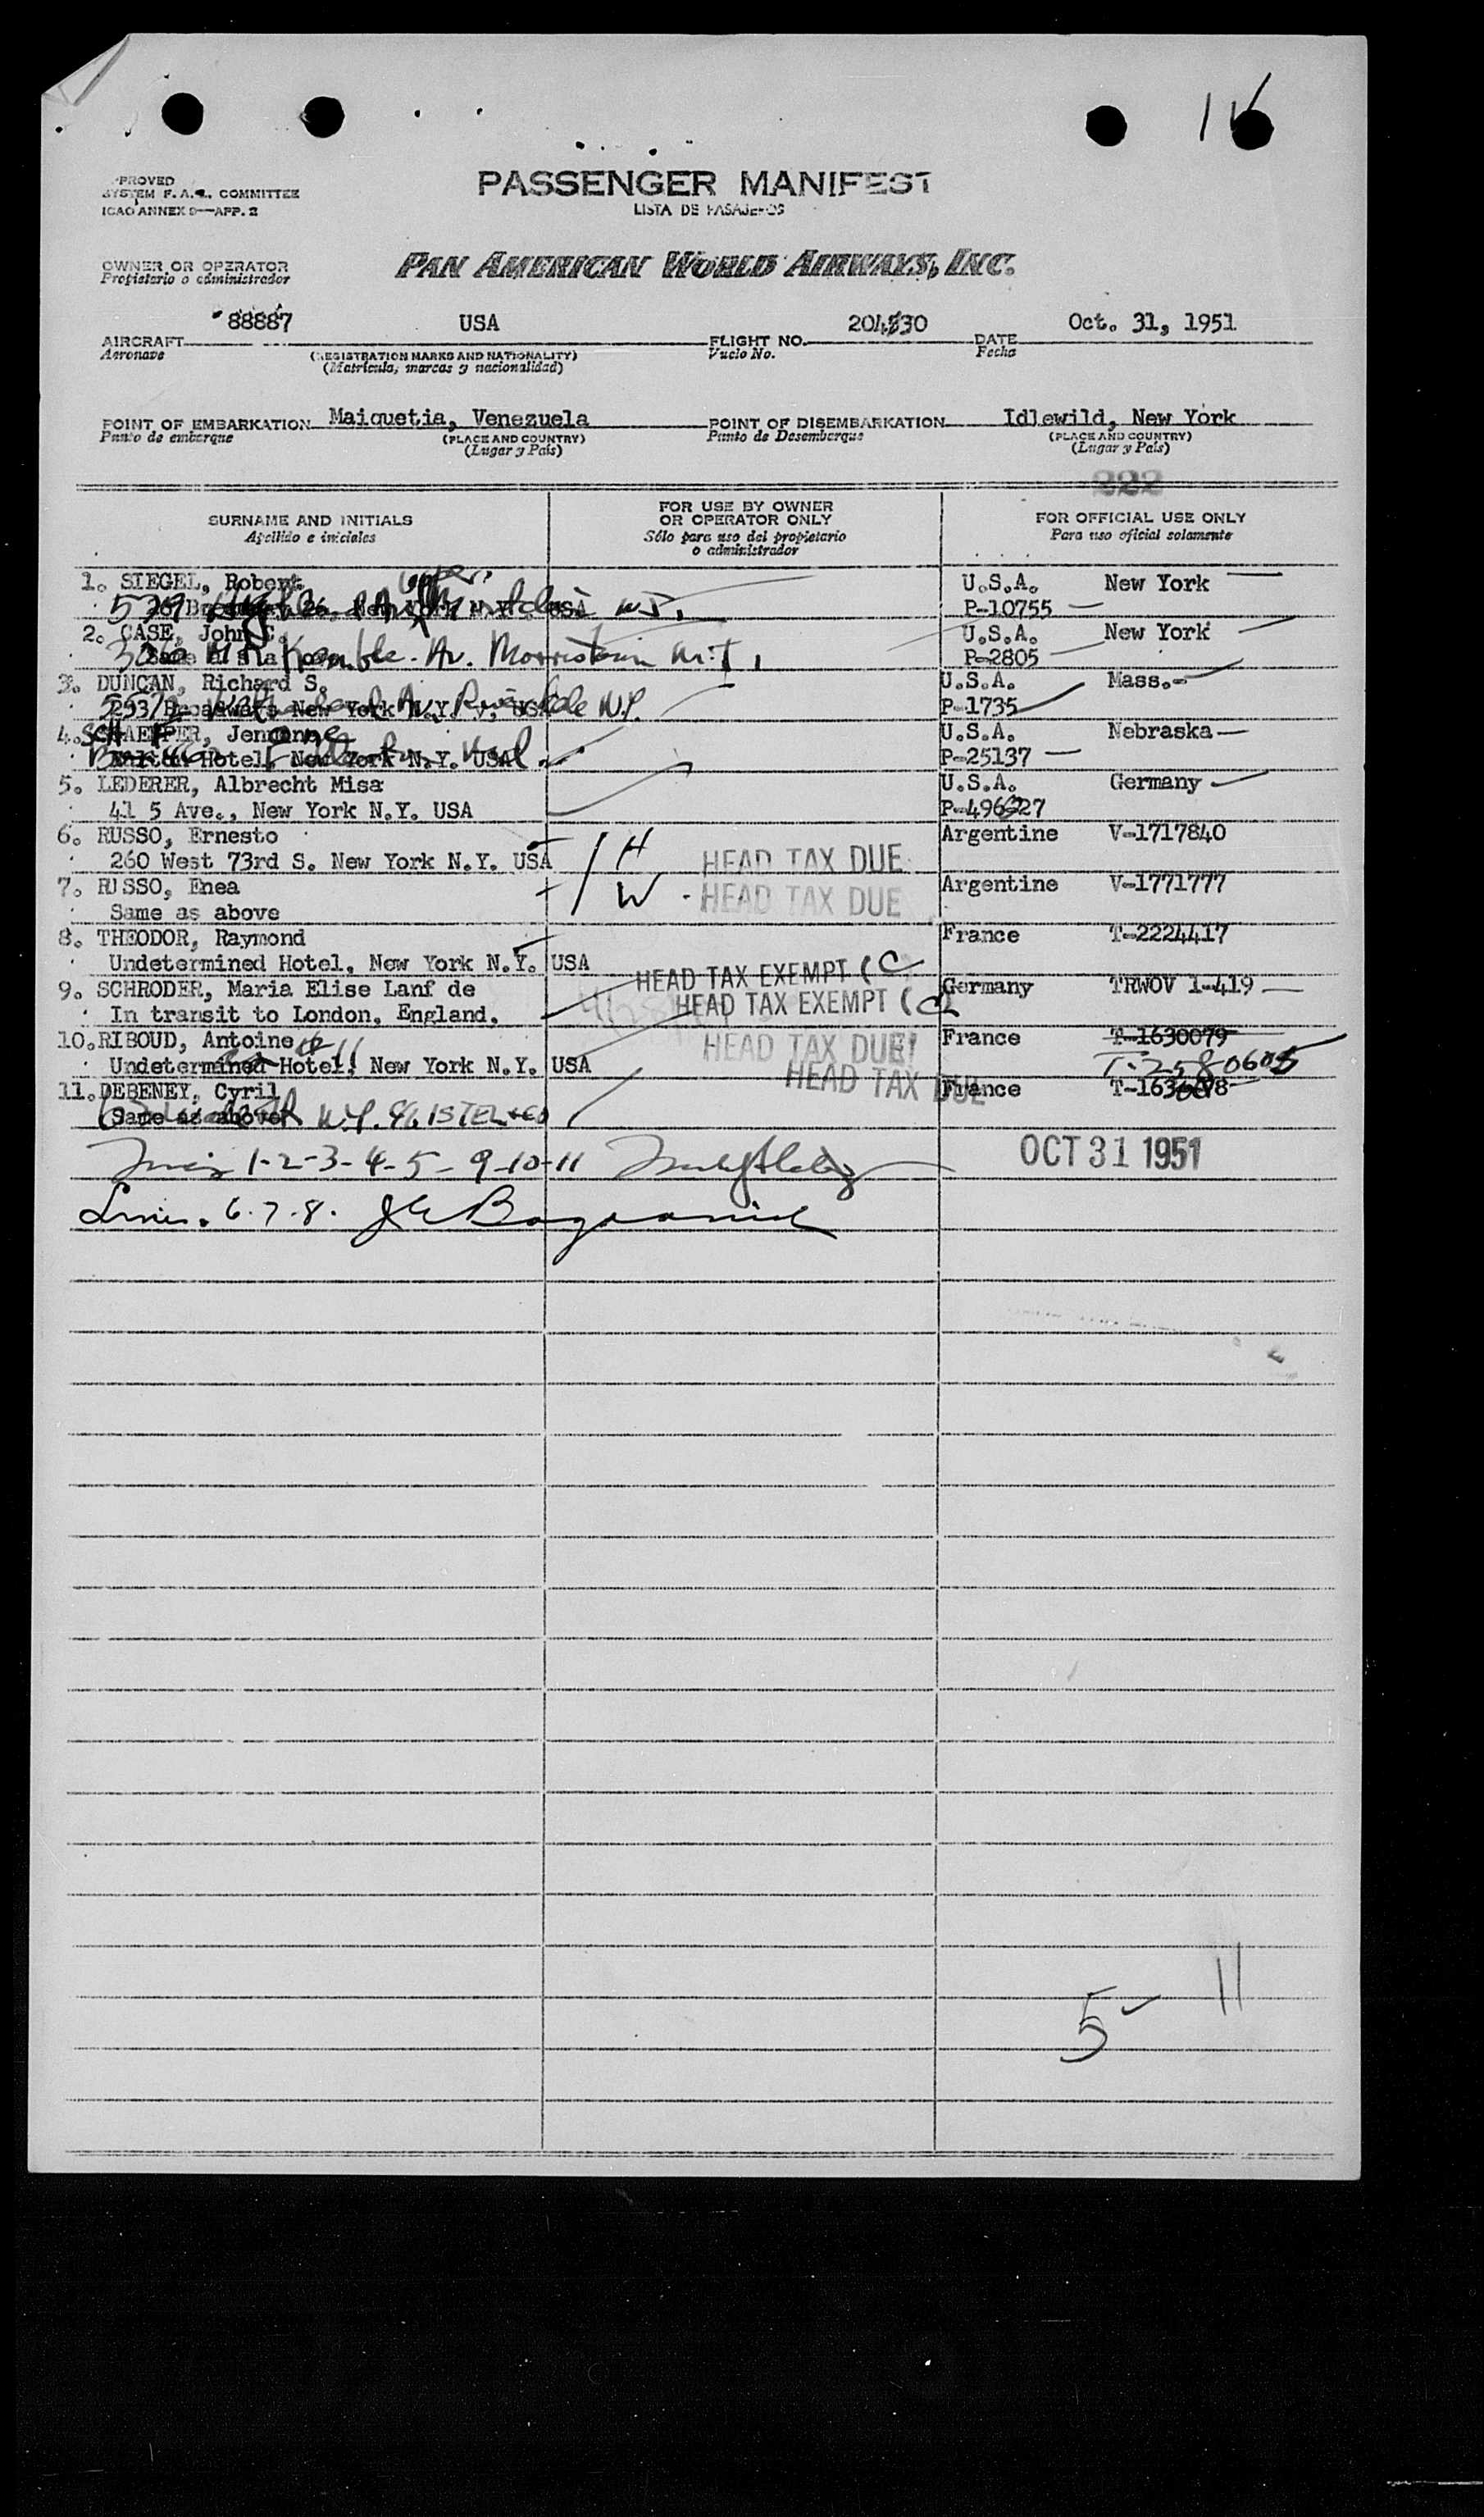 PASSENGER MANIFEST
LISTA DE PASAJEROS
SYSTEM F. A. L. COMMITTEE
ICAO ANNEX 9—APP. 2
OWNER OR OPERATOR
Propietario o administrador
PAN AMERICAN WORLD AIRWAYS, INC.
AIRCRAFT 88887 USA FLIGHT NO. DATE Oct. 31, 1951
Aeronave (REGISTRATION MARKS AND NATIONALITY) Vuelo No. Fecha
(Matrícula, marcas y nacionalidad)
POINT OF EMBARKATION Maiquetia, Venezuela POINT OF DISEMBARKATION Idlewild, New York
Punto de embarque (PLACE AND COUNTRY) Punto de Desembarque (PLACE AND COUNTRY)
(Lugar y País) (Lugar y País)
222
SURNAME AND INITIALS FOR USE BY OWNER OR OPERATOR ONLY FOR OFFICIAL USE ONLY
Apellido e iniciales Sólo para uso del propietario o administrador Para uso oficial solamente
1. SIEGEL, Robert U.S.A. New York
New York N.Y. USA N.J. P-10755
2. CASE, John C. U.S.A. New York
Kemble Av. Morristown N.J. P-2805
3. DUNCAN, Richard S. U.S.A. Mass.
Broadway New York N.Y. USA P-1735
4. U.S.A. Nebraska
Hotel, New York N.Y. USA P-25137
5. LEDERER, Albrecht Misa U.S.A. Germany
41 5 Ave., New York N.Y. USA
6. RUSSO, Ernesto H Argentine V-1717840
260 West 73rd S. New York N.Y. USA HEAD TAX DUE
7. RUSSO, Enea W Argentine V-1771777
Same as above HEAD TAX DUE
8. THEODOR, Raymond France T-2224417
Undetermined Hotel, New York N.Y. USA HEAD TAX EXEMPT (C
9. SCHRODER, Maria Elise Lanf de Germany TRWOV 1-419
In transit to London, England. HEAD TAX EXEMPT (C
10. RIBOUD, Antoine HEAD TAX DUE France T-1630079
Undetermined Hotel, New York N.Y. USA HEAD TAX DUE T-2580605
11. DEBENEY, Cyril France
Same as above
1-2-3-4-5-9-10-11 OCT 31 1951
6-7-8.
11
5